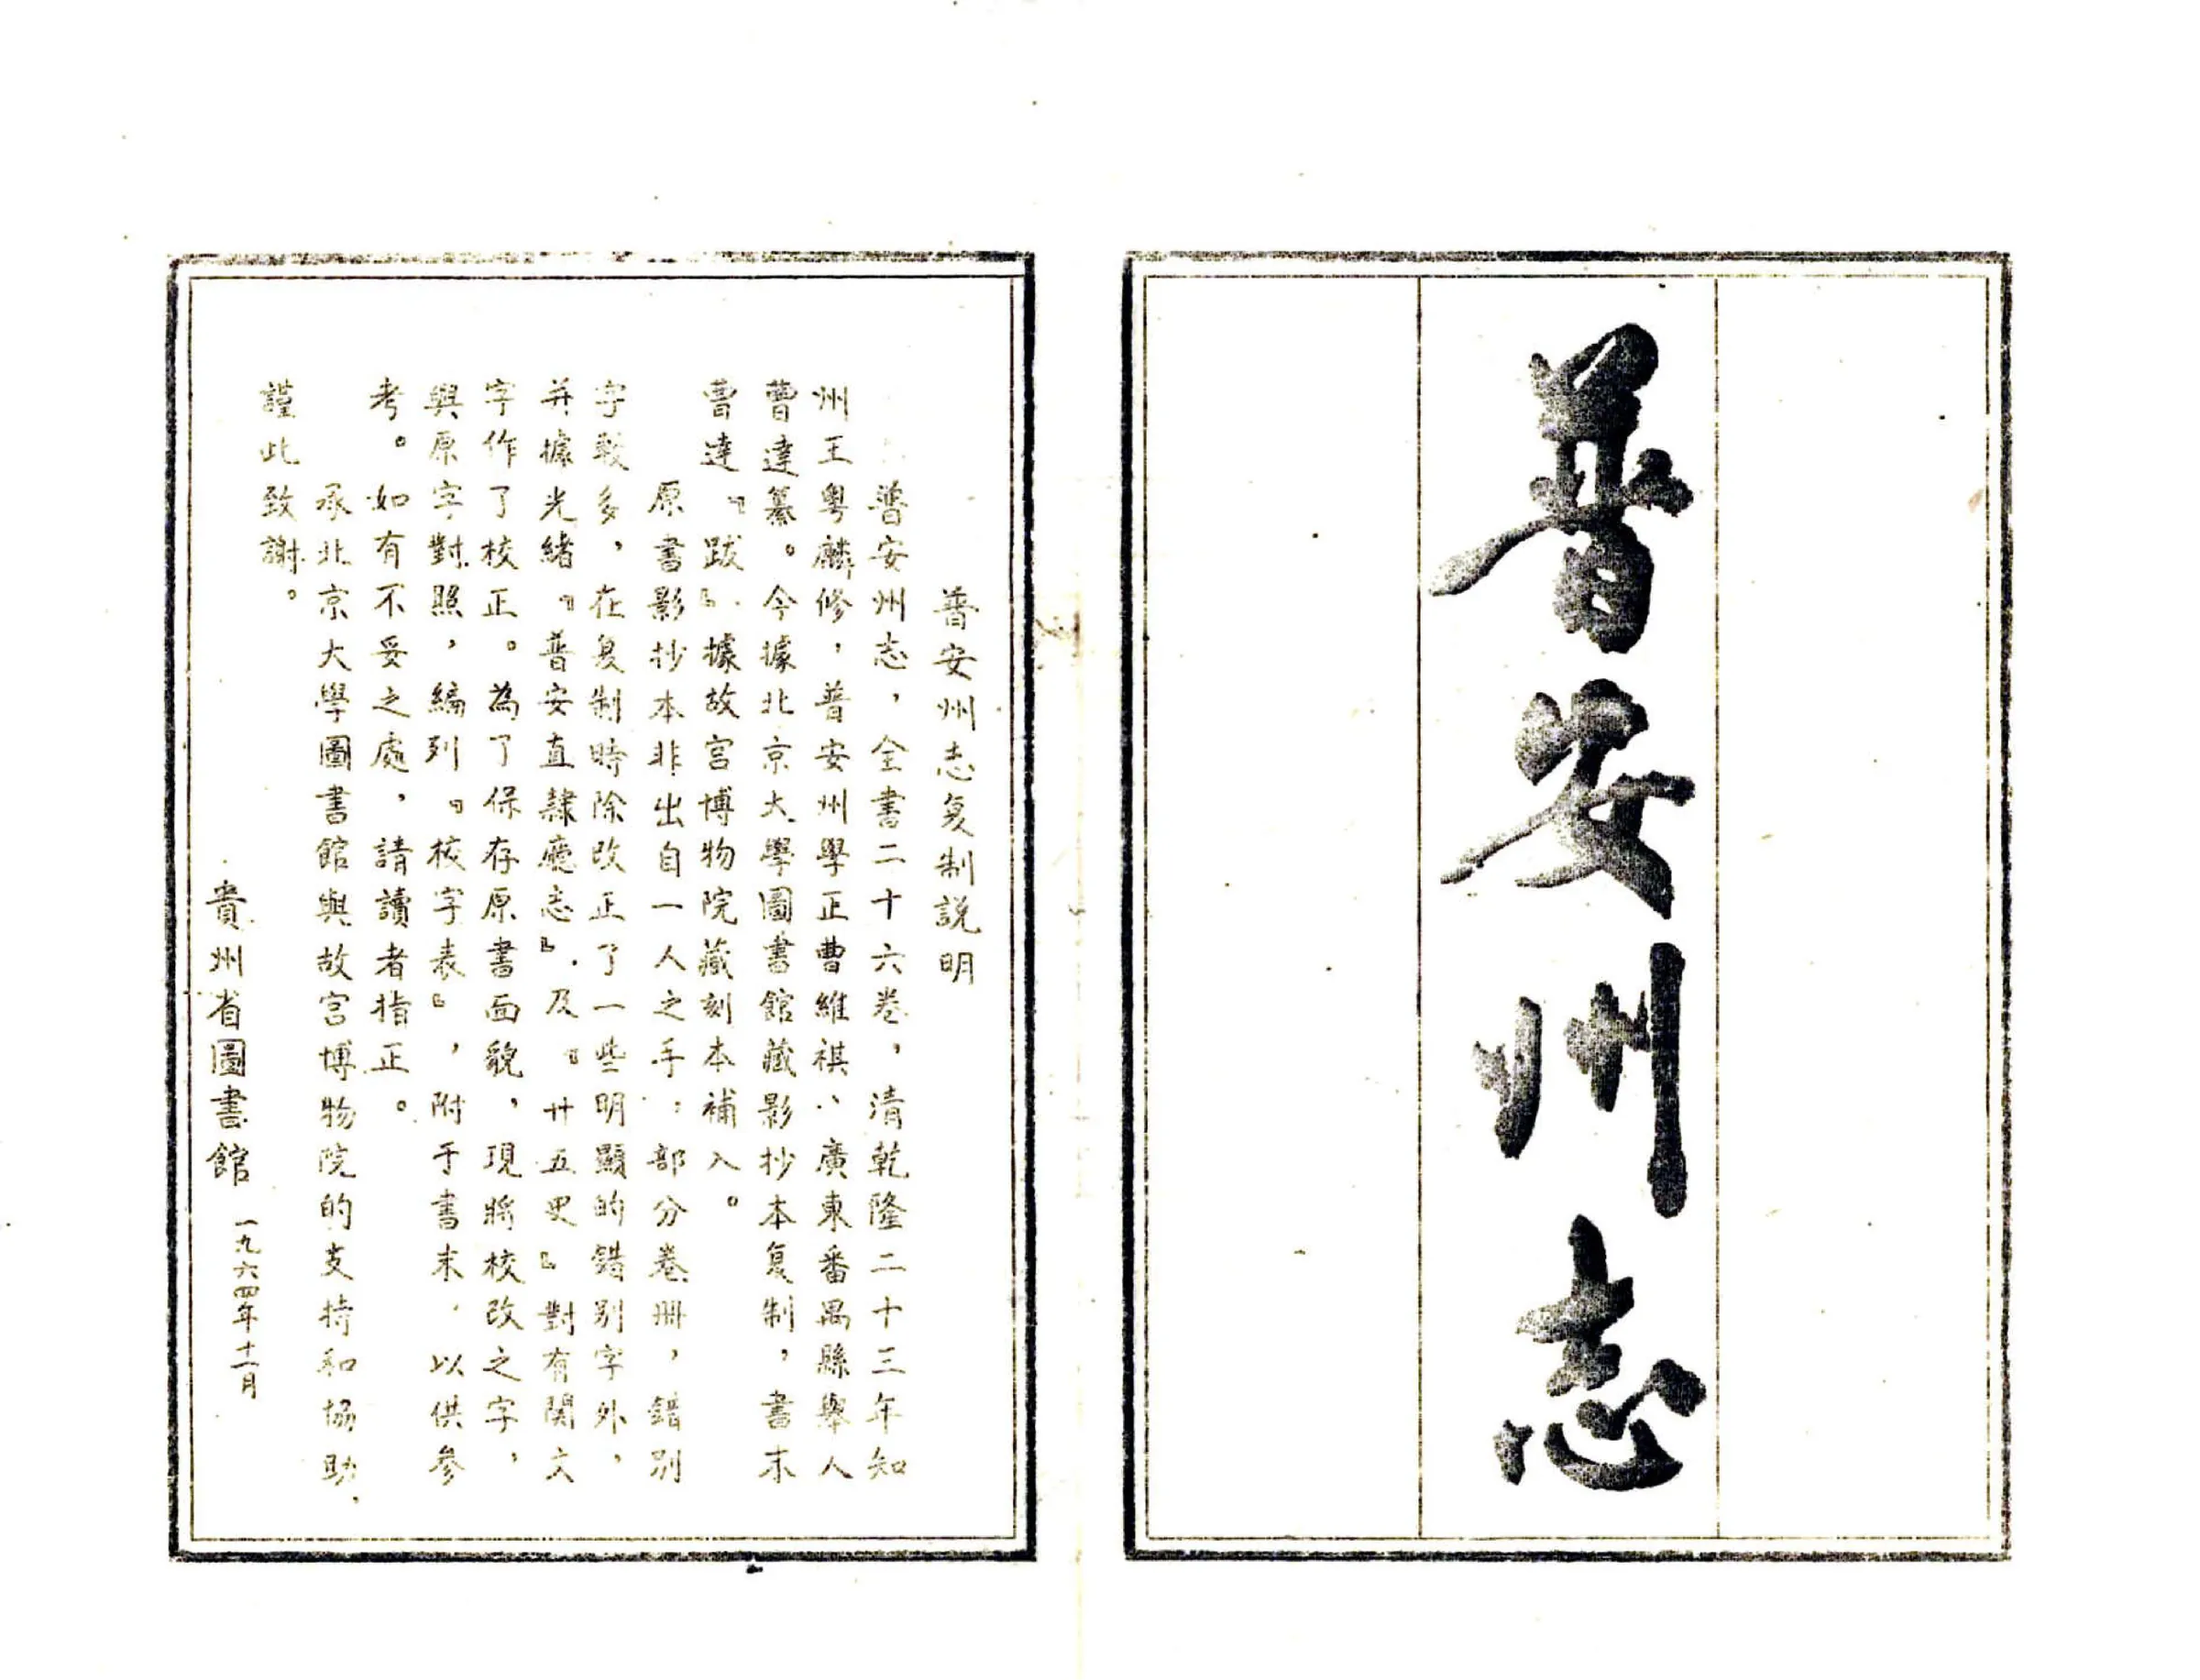 普安州志
普安州志复制説明
普安州志，全書二十六卷，清乾隆二十三年知
州王粤麟修，普安州學正曹維祺、廣東番禺縣舉人
曹達纂。今據北京大學圖書館藏影抄本复制，書末
曹達『跋』據故宫博物院藏刻本補入。
原書影抄本非出自一人之手，部分卷冊，錯别
字較多，在复制時除改正了一些明顯的錯别字外，
并據光緒『普安直隸廳志』及『廿五史』對有関文
字作了校正。為了保存原書面貌，現將校改之字，
與原字對照，編列『校字表』，附于書末，以供參
考。如有不妥之處，請讀者指正。
承北京大學圖書館與故宫博物院的支持和協助，
謹此致謝。
貴州省圖書館 一九六四年十一月